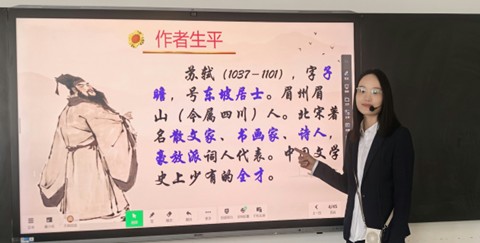 作者生平
苏轼（1037－1101），字子
瞻，号东坡居士。眉州眉
山（今属四川）人。北宋著
名散文家、书画家、诗人，
豪放派词人代表。中国文学
史上少有的全才。